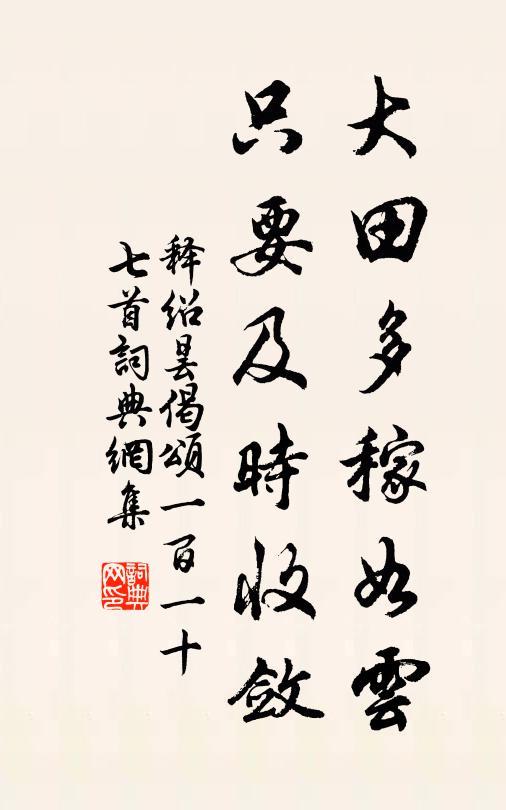 大田多稼如雲
只要及時收斂
释绍昙偈頌一百一十
七首詞典網集
詞典
网印